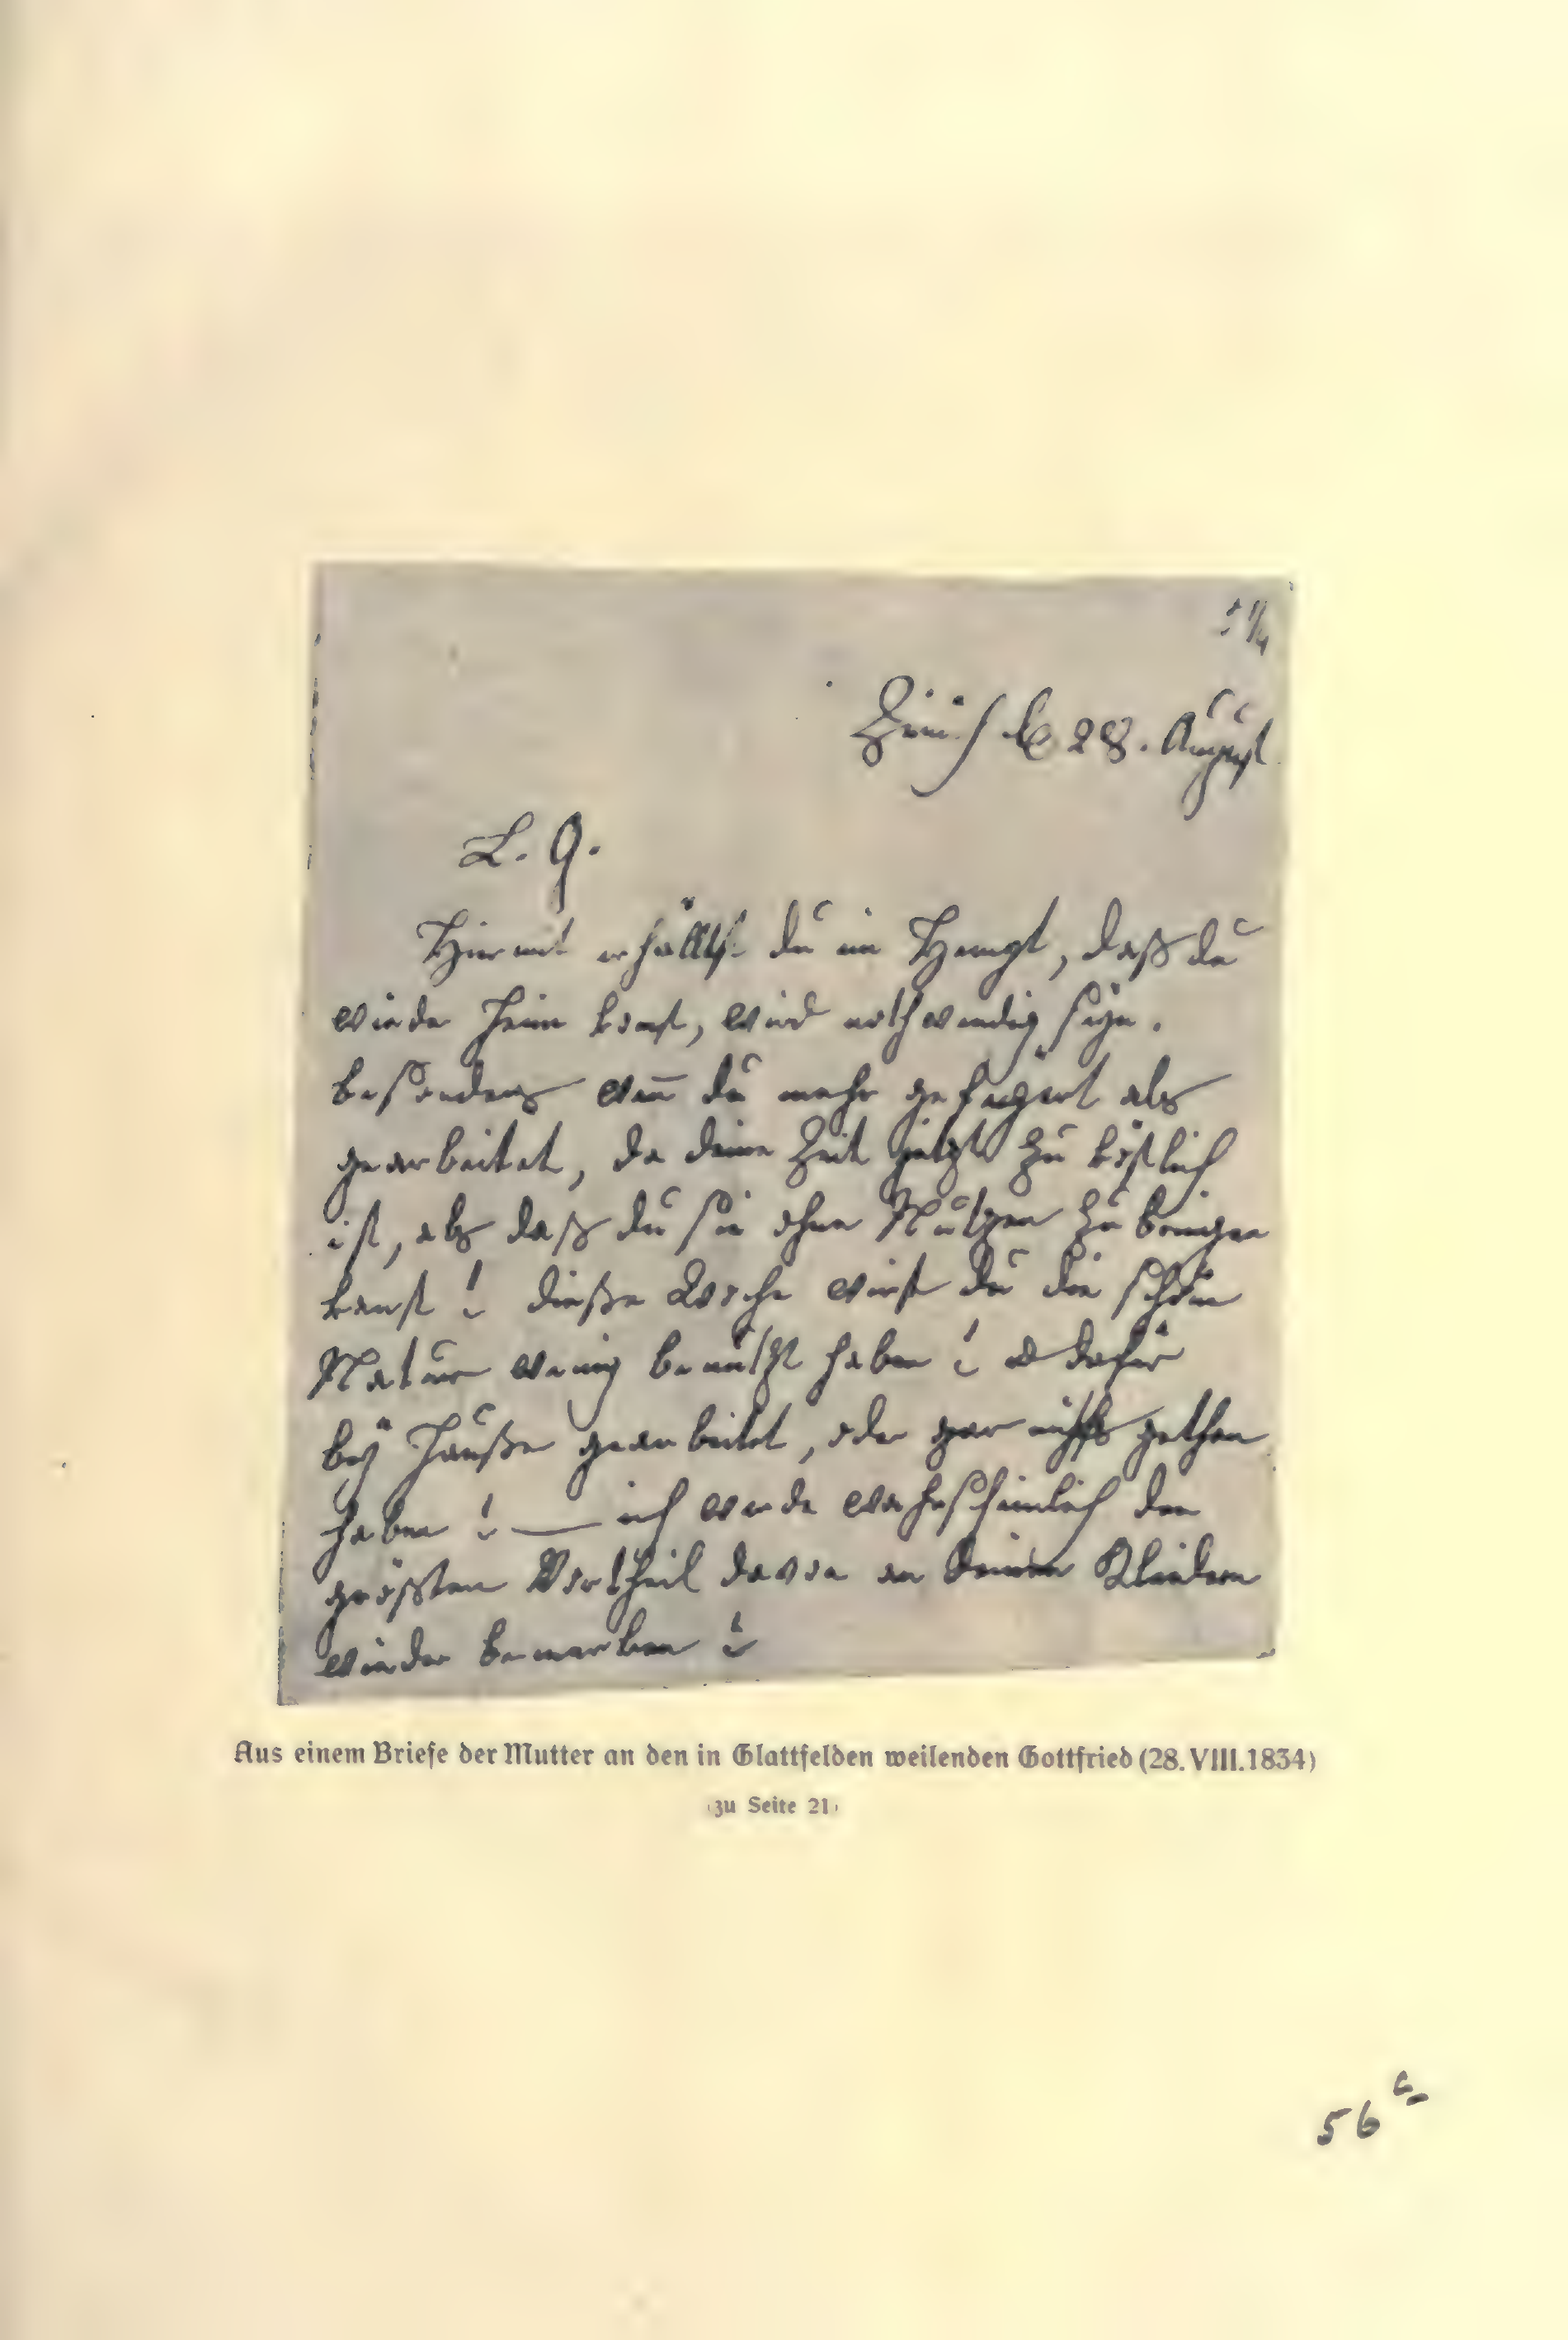 Zürich d. 28. August
L. G.
Hiermit erhälltst du ein Hempt, daß du
wieder heim komst, wird nothwendig seyn.
besonders wen̄ du mehr gefeyert als
gearbeitet, da deine Zeit jetzt zu köstlich
ist, als daß du sie ohne Nutzen zu bringen
kanst! dieße Woche wirst du die schöne
Natur wenig benützt haben! u dafür
bey Hauße gearbeitet, oder gar nichts gethan
haben! — ich werde wahrscheinlich den
größten Vortheil davon an deinen Kleidern
wieder bemerken!
Aus einem Briefe der Mutter an den in Glattfelden weilenden Gottfried (28. VIII. 1834)
(zu Seite 21)
56